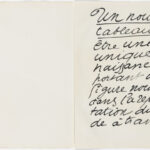 Un nou
tableau
être une
unique
naissance
portant
figure nou
dans la re
tation du
de à tra